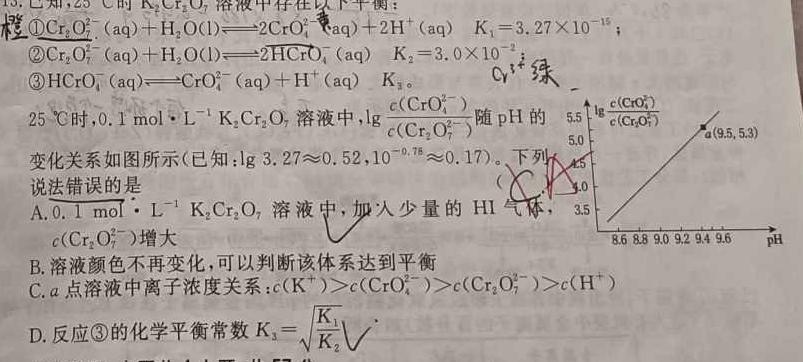 13.已知,25 ℃时 K₂Cr₂O₇ 溶液中存在以下平衡:
橙 ①Cr₂O₇²⁻(aq)+H₂O(l)⇌2CrO₄²⁻(aq)+2H⁺(aq) K₁=3.27×10⁻¹⁵; 黄
②Cr₂O₇²⁻(aq)+H₂O(l)⇌2HCrO₄⁻(aq) K₂=3.0×10⁻²;
③HCrO₄⁻(aq)⇌CrO₄²⁻(aq)+H⁺(aq) K₃。 Cr³⁺绿
25 ℃时,0.1 mol·L⁻¹ K₂Cr₂O₇ 溶液中,lg c(CrO₄²⁻)/c(Cr₂O₇²⁻)随 pH 的
变化关系如图所示(已知:lg 3.27≈0.52,10⁻⁰·⁷⁸≈0.17)。下列
说法错误的是 ( C
A.0.1 mol·L⁻¹ K₂Cr₂O₇ 溶液中,加入少量的 HI 气体,
c(Cr₂O₇²⁻)增大
B.溶液颜色不再变化,可以判断该体系达到平衡
C.a 点溶液中离子浓度关系:c(K⁺)>c(CrO₄²⁻)>c(Cr₂O₇²⁻)>c(H⁺)
D.反应③的化学平衡常数 K₃=√(K₁/K₂)
lg c(CrO₄²⁻)/c(Cr₂O₇²⁻)
5.5
5.0
4.5
4.0
3.5
a(9.5,5.3)
8.6 8.8 9.0 9.2 9.4 9.6 pH